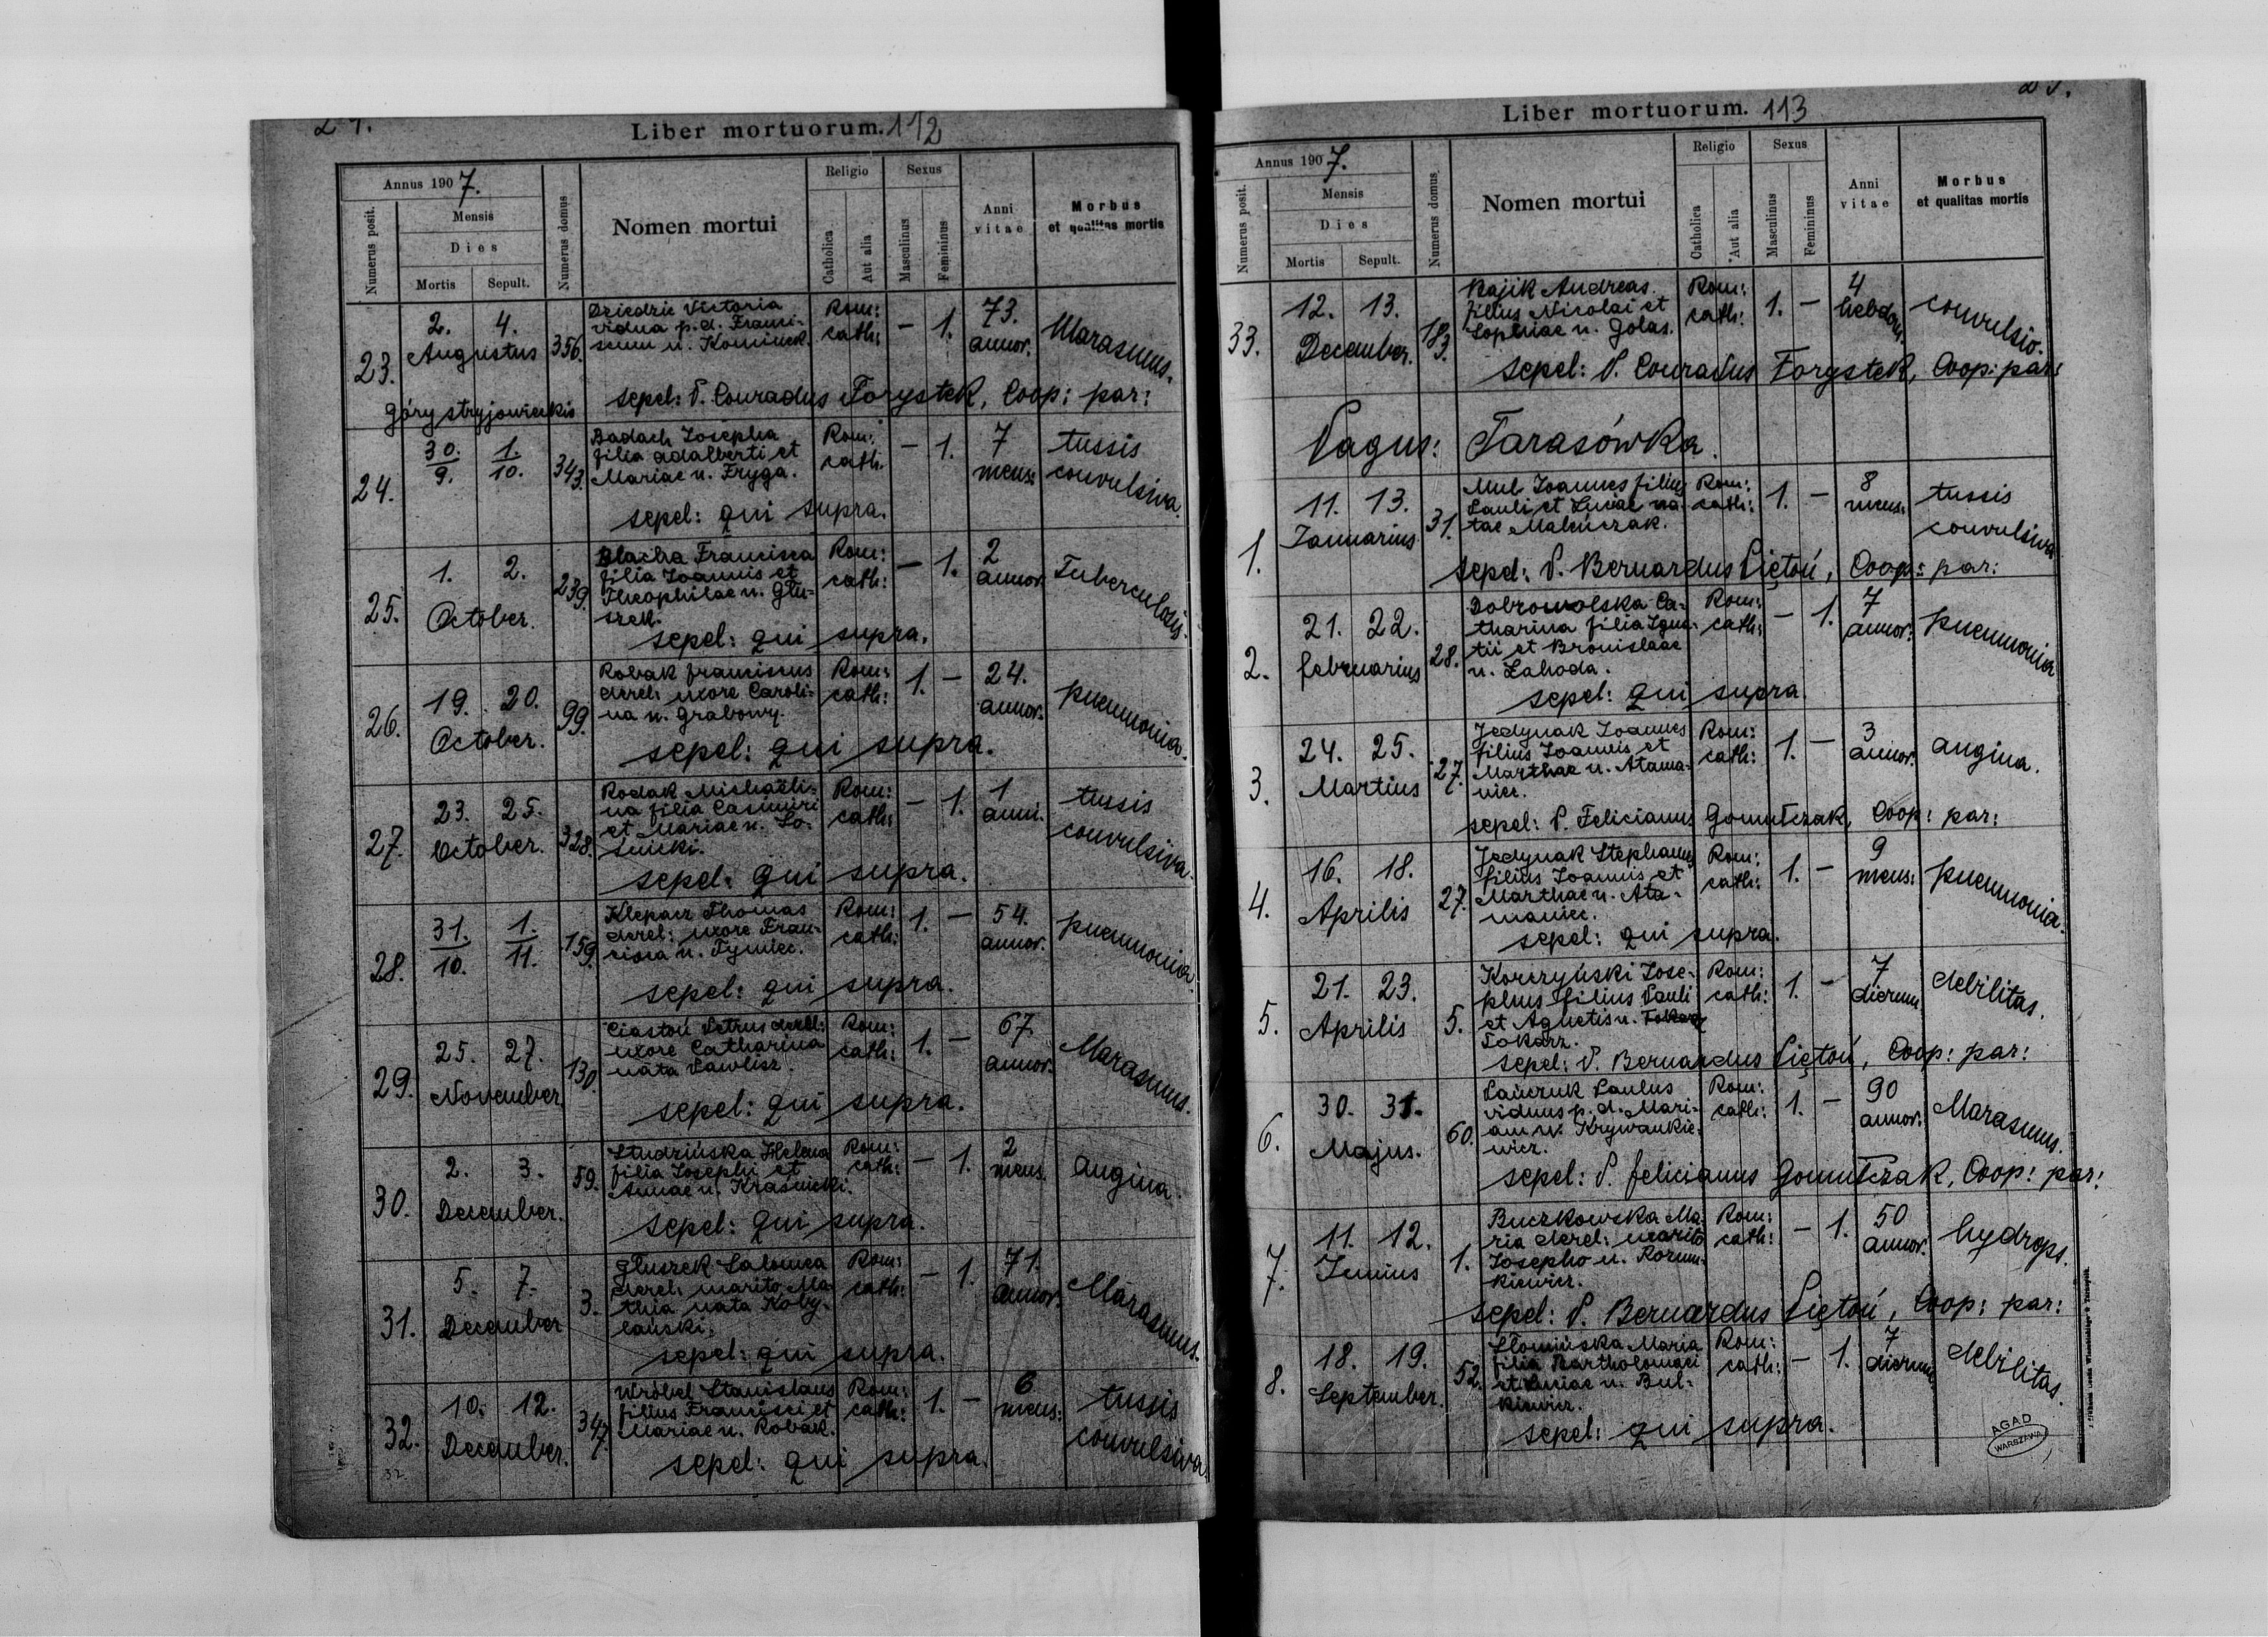 Liber mortuorum. 112
Annus 1907.
Numerus posit.
Mensis
Dies
Mortis Sepult.
Numerus domus
Nomen mortui
Religio
Catholica
Aut alia
Sexus
Masculinus
Femininus
Anni vitae
Morbus
et qualitas mortis
23.
2. 4.
Augustus
356.
Dziedzic Victoria
vidua p. d. Franci-
scum n. Kominek.
Rom:
cath:
– 1.
73.
annor.
Marasmus.
góry stryjowieckie
sepel: P. Conradus Forystek, Coop: par:
24.
30. 1.
9. 10.
343.
Badach Josepha
filia Adalberti et
Mariae n. Fryga.
Rom:
cath:
– 1.
7
mens:
tussis
convulsiva.
sepel: qui supra.
25.
1. 2.
October.
239.
Blacha Francisca
filia Joannis et
Theophilae n. Głu-
szek.
Rom:
cath:
– 1.
2
annor.
Tuberculosis.
sepel: qui supra.
26.
19. 20.
October.
99.
Robak Franciscus
derel: uxore Caroli-
na n. Grabowy.
Rom:
cath:
1. –
24.
annor.
pneumonia.
sepel: qui supra.
27.
23. 25.
October.
328.
Rodak Michaëli-
na filia Casimiri
et Mariae n. Ło-
snicki.
Rom:
cath:
– 1.
1
anni.
tussis
convulsiva.
sepel: qui supra.
28.
31. 1.
10. 11.
159.
Klepacz Thomas
derel: uxore Fran-
cisca n. Tymiec.
Rom:
cath:
1. –
54.
annor.
pneumonia.
sepel: qui supra.
29.
25. 27.
November.
130.
Ciastoń Petrus derel:
uxore Catharina
nata Pawlisz.
Rom:
cath:
1. –
67.
annor.
Marasmus.
sepel: qui supra.
30.
2. 3.
December.
59.
Studzińska Helena
filia Josephi et
Annae n. Krasnicki.
Rom:
cath:
– 1.
2
mens.
angina.
sepel: qui supra.
31.
5. 7.
December
3.
Głuszek Salomea
derel: marito Ma-
thia nata Koby-
lański.
Rom:
cath:
– 1.
71.
annor.
Marasmus.
sepel: qui supra.
32.
10. 12.
December.
347.
Wróbel Stanislaus
filius Francisci et
Mariae n. Robak.
Rom:
cath:
1. –
6
mens:
tussis
convulsiva
sepel: qui supra.
32.
Liber mortuorum. 113
Annus 1907.
Numerus posit.
Mensis
Dies
Mortis Sepult.
Numerus domus
Nomen mortui
Religio
Catholica
Aut alia
Sexus
Masculinus
Femininus
Anni
vitae
Morbus
et qualitas mortis
33.
12. 13.
December.
183.
Kajik Andreas
filius Nicolai et
Sophiae n. Golas.
Rom:
cath:
1. –
4
hebdom.
convulsio.
sepel: P. Conradus Forystek, Coop: par:
Pagus: Tarasówka.
1.
11. 13.
Januarius
31.
Mul Joannes filius
Pauli et Luciae na-
tae Maleńczak.
Rom:
cath:
1. –
8
mens:
tussis
convulsiva
sepel: P. Bernardus Piętoń, Coop: par:
2.
21. 22.
februarius
28.
Dobrowolska Ca-
tharina filia Igna-
tii et Bronislaae
n. Lahoda.
Rom:
cath:
– 1.
7
annor.
pneumonia
sepel: qui supra.
3.
24. 25.
Martius
27.
Jedynak Joannes
filius Joannis et
Marthae n. Atama-
niec.
Rom:
cath:
1. –
3
annor.
angina.
sepel: P. Felicianus Gomułczak, Coop: par:
4.
16. 18.
Aprilis
27.
Jedynak Stephanus
filius Joannis et
Marthae n. Ata-
maniec.
Rom:
cath:
1. –
9
mens:
pneumonia.
sepel: qui supra.
5.
21. 23.
Aprilis
5.
Korczyński Jose-
phus filius Pauli
et Agnetis n.
Tokarz.
Rom:
cath:
1. –
7
dierum
debilitas.
sepel: P. Bernardus Piętoń, Coop: par:
6.
30. 31.
Majus.
60.
Pańczuk Paulus
viduus p. d. Mari-
am n. Krywankie-
wicz.
Rom:
cath:
1. –
90
annor.
Marasmus.
sepel: P. felicianus Gomułczak, Coop: par:
7.
11. 12.
Junius
1.
Buczkowska Ma-
ria derel: marito
Josepho n. Rozum-
kiewicz.
Rom:
cath:
– 1.
50
annor.
hydrops.
sepel: P. Bernardus Piętoń, Coop: par:
8.
18. 19.
September.
52.
Słomińska Maria
filia Bartholomaei
et Luciae n. Bul-
kiewicz.
Rom:
cath:
– 1.
7
dierum
debilitas.
sepel: qui supra.
AGAD
WARSZAWA